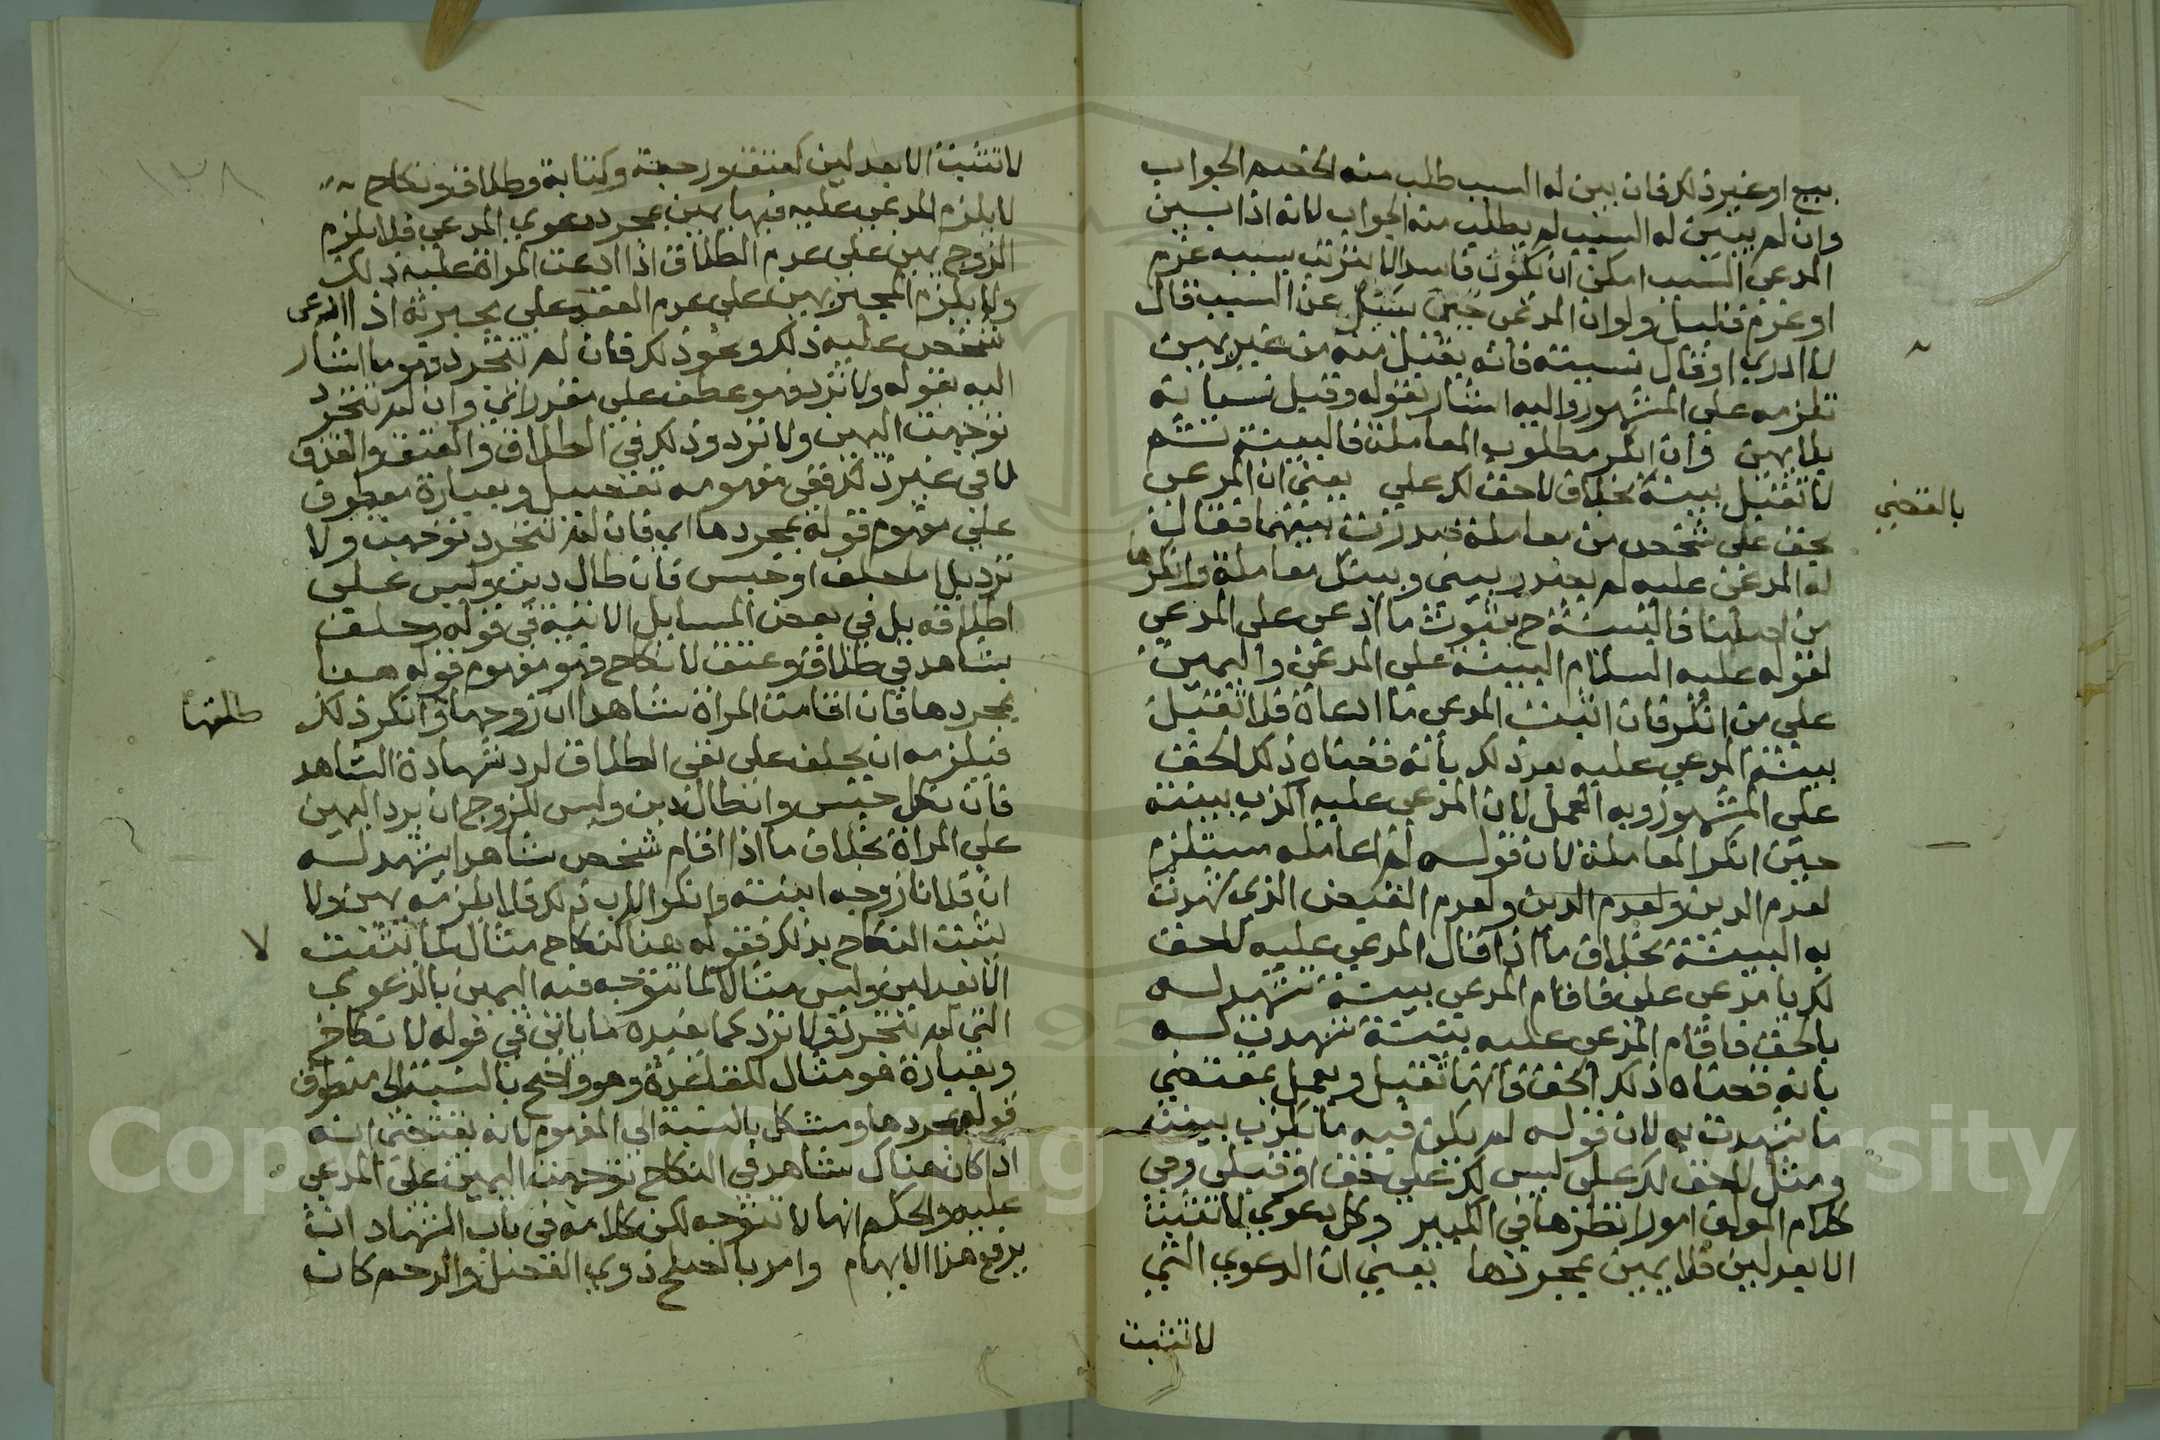 بيع او غير ذلك فان بين له السبب طلب منه الخصم الجواب
وان لم يبين له السبب لم يطلب منه الجواب لانه اذا بين
المدعي السبب امكن ان يكون فاسدا لا يترتب بسببه غرم
او غرم قليل ولو ان المدعي حين سئل عن السبب قال
لا ادري او قال نسيته فانه يقبل منه من غير يمين
تلزمه على المشهور واليه اشار بقوله وقبل نسيانه
بلا يمين وان انكر مطلوب المعاملة فالبينة ثم
لا تقبل بينة بخلاف لا حق لك علي يعني ان المدعي
بالقضي
بحق على شخص من معاملة صدرت بينهما فقال
له المدعى عليه لم يصدر بيني وبينك معاملة وانكرها
من اصلها فالبينة ح بثبوت ما ادعى على المدعي
لقوله عليه السلام البينة على المدعي واليمين
على من انكر فان اثبت المدعي ما ادعاه فلا تقبل
بينة المدعي عليه بعد ذلك بانه قضاه ذلك الحق
على المشهور وبه العمل لان المدعى عليه اكذب بينته
حين انكر المعاملة لان قوله لم اعامله مستلزم
لعدم الدين ولعدم الدين ولعدم القبض الذي شهدت
به البينة بخلاف ما اذا قال المدعي عليه لا حق
لك يا مدعي علي فاقام المدعي بينة تشهد له
بالحق فاقام المدعى عليه بينة شهدت له
بانه قضاه ذلك الحق فانها تقبل ويعمل بمقتضى
ما شهدت به لان قوله لم يكن فيه ما يكذب بينته
ومثل لا حق لك علي ليس لك علي حق او قبلي وفي
كلام المولف امور انظرها في الكبير وكل دعوي لا تثبت
الا بعدلين فلا يمين بمجردها يعني ان الدعوي التي
لا تثبت
لا تثبت الا بعدلين كعتق ورجعة وكتابة وطلاق ونكاح
لا يلزم المدعي عليه فيها يمين بمجرد دعوي المدعي فلا يلزم
الزوج يمين على عدم الطلاق اذا ادعت المراة عليه ذلك
ولا يلزم المجبر يمين على عدم العقد علي مجبرته اذا ادعى
شخص عليه ذلك ونحو ذلك فان لم تتجرد فهو ما اشار
اليه بقوله ولا ترد فهو عطف على مقدر اي وان لم تتجرد
توجهت اليمين ولا ترد وذلك في الطلاق والعتق والقذف
لا في غير ذلك ففي مفهومه تفصيل وبعبارة معطوف
على مفهوم قوله بمجردها اي فان لم تتجرد توجهت ولا
ترد بل اما حلف او حبس فان طال دين وليس على
اطلاقه بل في بعض المسايل الاتية في قوله وحلف
بشاهد في طلاق وعتق لا نكاح فهو مفهوم قوله هنا
بمجردها فان اقامت المراة شاهدا ان زوجها وانكر ذلك
طلقها
فيلزمه ان يحلف على نفي الطلاق لرد شهادة الشاهد
فان نكل حبس وان طال دين وليس للزوج ان يرد اليمين
على المراة بخلاف ما اذا اقام شخص شاهدا يشهد له
ان فلانا زوجه ابنته وانكر الاب ذلك فلا يلزمه يمين ولا
يثبت النكاح بذلك فقوله هنا لنكاح مثال لما يثبت
لا
الا بعدلين وليس مثالا لما تتوجه فيه اليمين بالدعوي
التي لم تتجرد ولا ترد كما يفيده ما ياتي في قوله لا نكاح
وبعبارة هو مثال للقاعدة وهو واضح بالنسبة الى منطوق
قوله بمجردها ومشكل بالنسبة الي المفهوم لانه يقتضي انه
اذا كان هناك شاهد في النكاح توجهت اليمين على المدعي
عليه والحكم انها لا تتوجه لكن كلامه في باب الشهادات
يدفع هذا الايهام وامر بالصلح ذوي الفضل والرحم كان